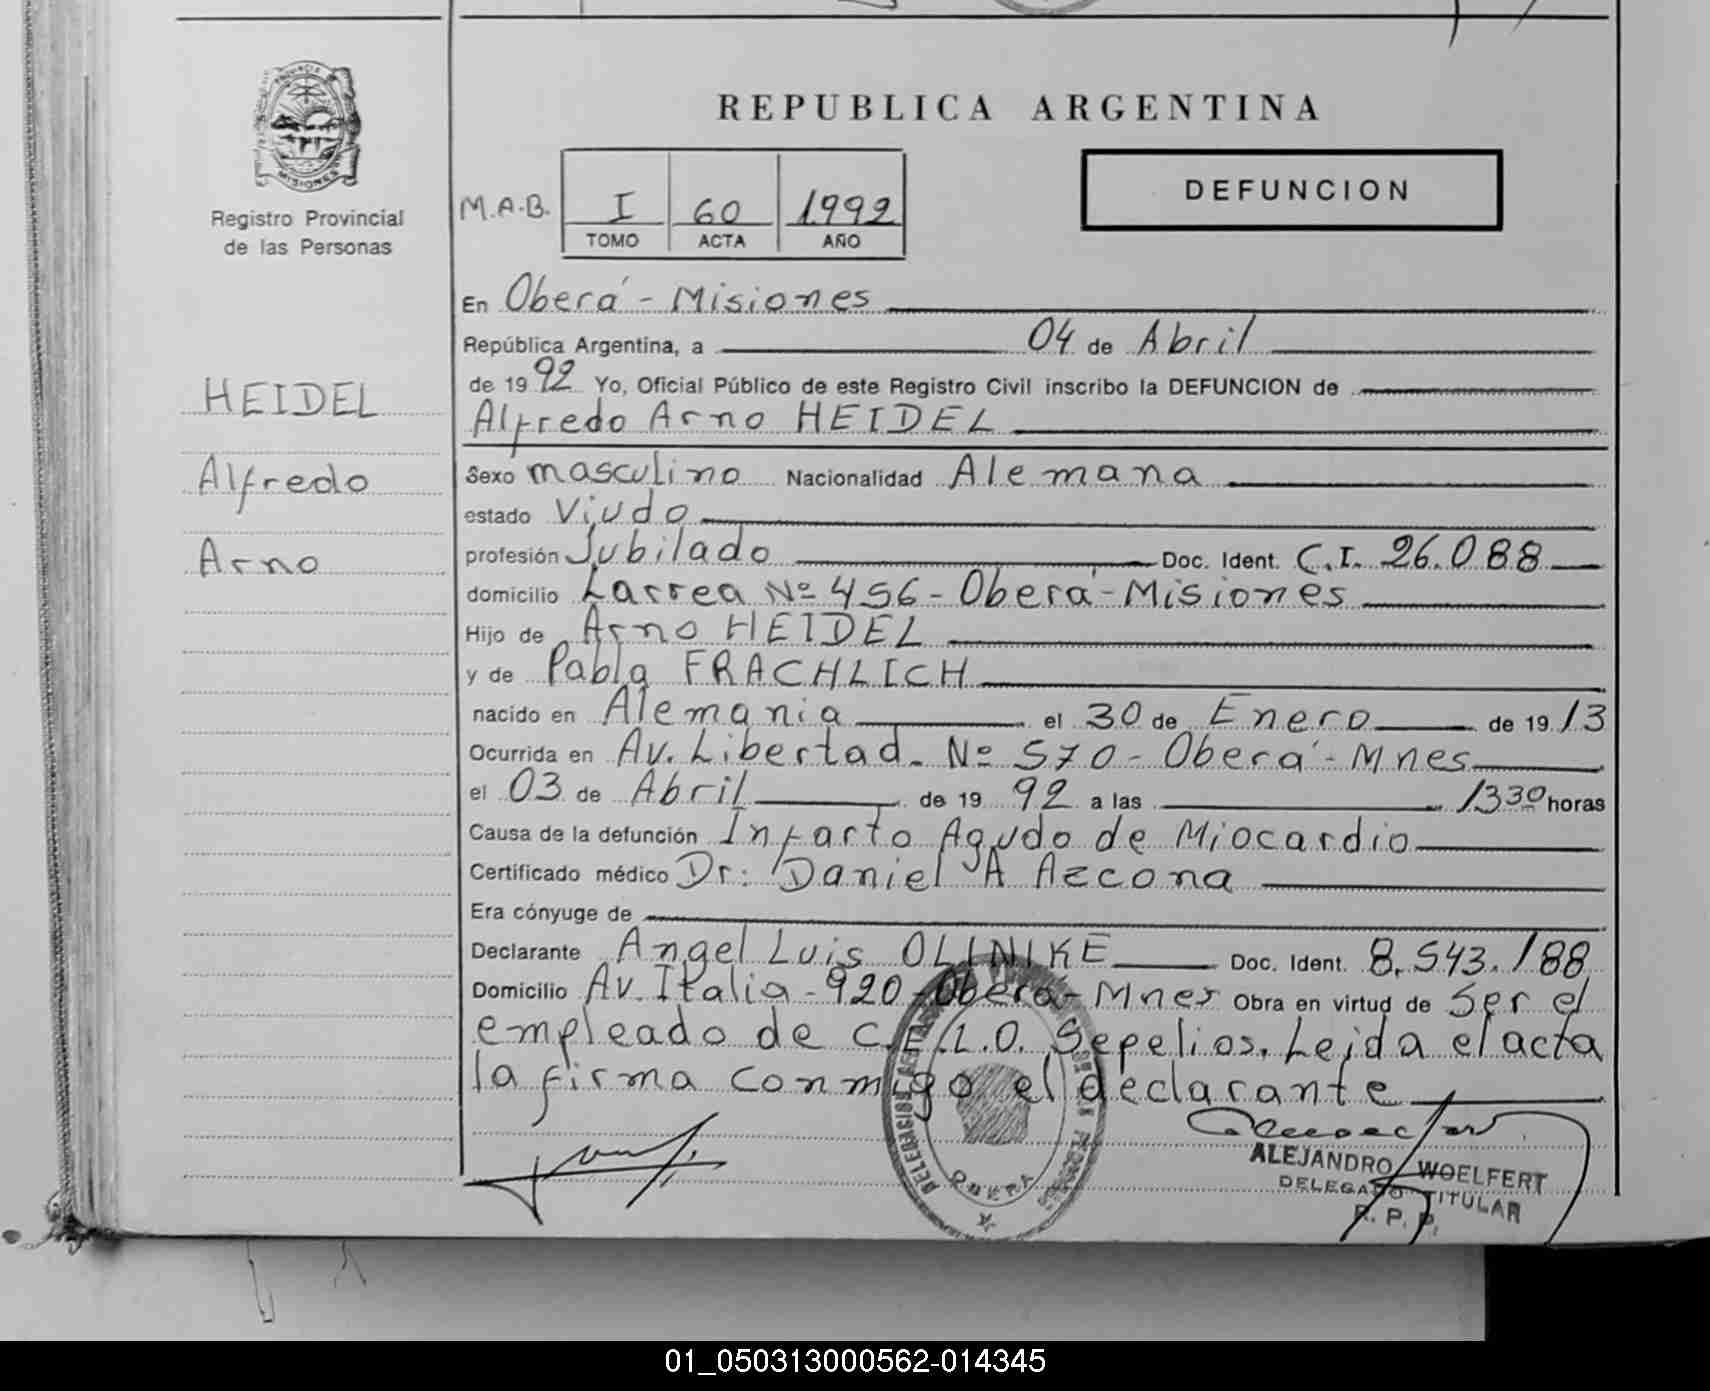 REPUBLICA ARGENTINA
MISIONES
Registro Provincial
de las Personas
M.A.B.
I 60 1992
TOMO ACTA AÑO
DEFUNCION
HEIDEL
Alfredo
Arno
En Oberá - Misiones
República Argentina, a 04 de Abril
de 1992 Yo, Oficial Público de este Registro Civil inscribo la DEFUNCION de
Alfredo Arno HEIDEL
Sexo masculino Nacionalidad Alemana
estado Viudo
profesión Jubilado Doc. Ident. C.I. 26.088
domicilio Larrea Nº 456 - Oberá - Misiones
Hijo de Arno HEIDEL
y de Pabla FRACHLICH
nacido en Alemania el 30 de Enero de 1913
Ocurrida en Av. Libertad. Nº 570 - Oberá - Mnes
el 03 de Abril de 1992 a las 13 30 horas
Causa de la defunción Infarto Agudo de Miocardio
Certificado médico Dr: Daniel A Azcona
Era cónyuge de
Declarante Angel Luis OLINIKE Doc. Ident. 8.543.188
Domicilio Av. Italia - 920 - Oberá - Mnes Obra en virtud de Ser el
empleado de C.E.L.O. Sepelios. Leida el acta
la firma conmigo el declarante
OBERA
ALEJANDRO WOELFERT
DELEGADO TITULAR
R. P. P.
01_050313000562-014345